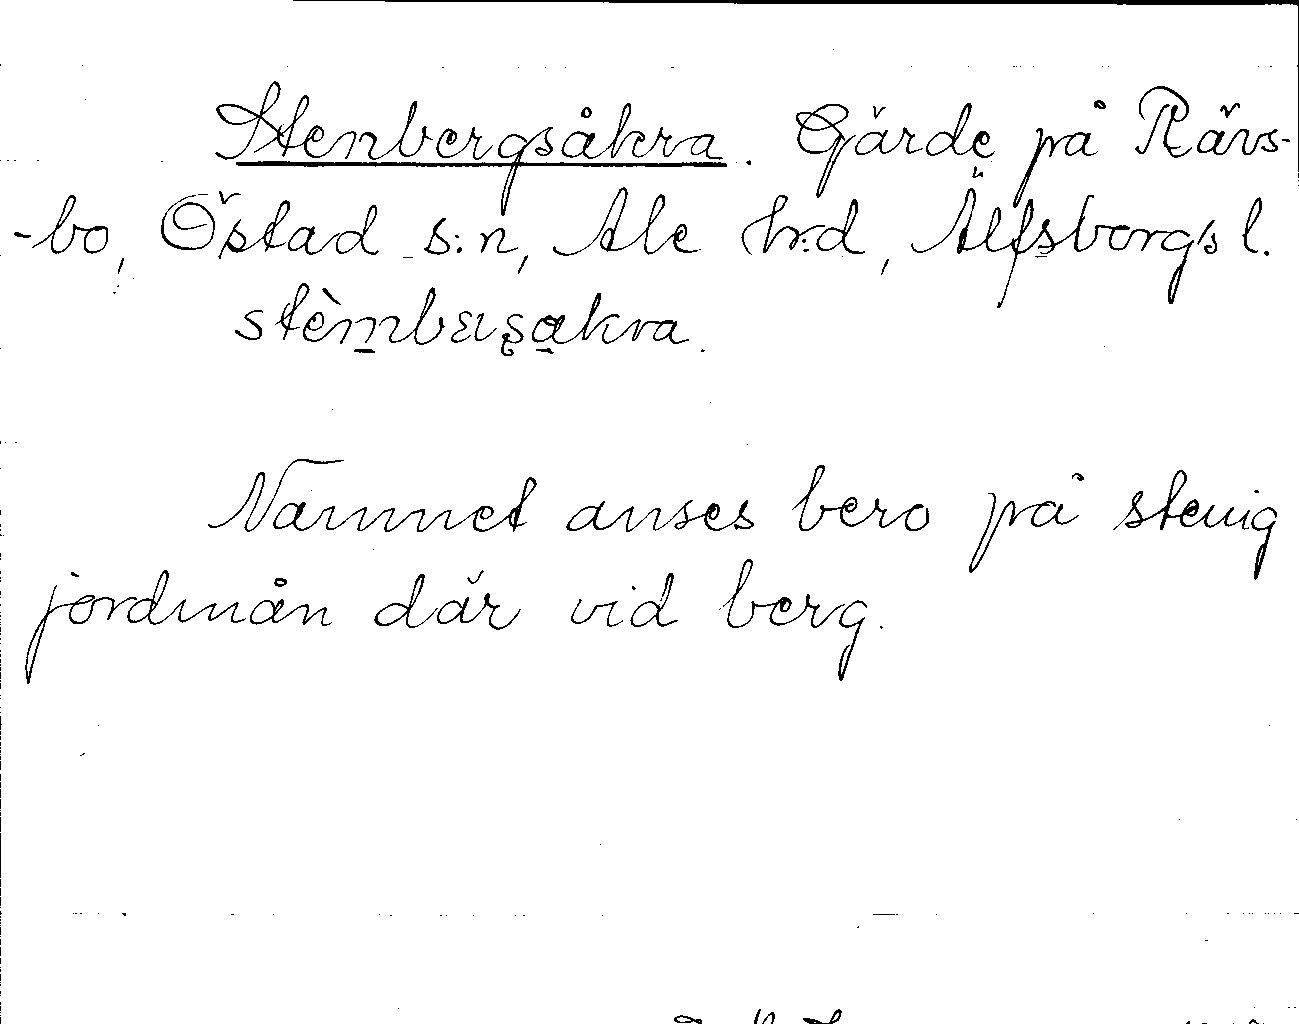 Stenbergsåkra. Gärde på Rävs-
-bo, Östad s:n, Ale hr:d, Älfsborgs l.
Namnet anses bero på stenig
jordmån där vid berg.